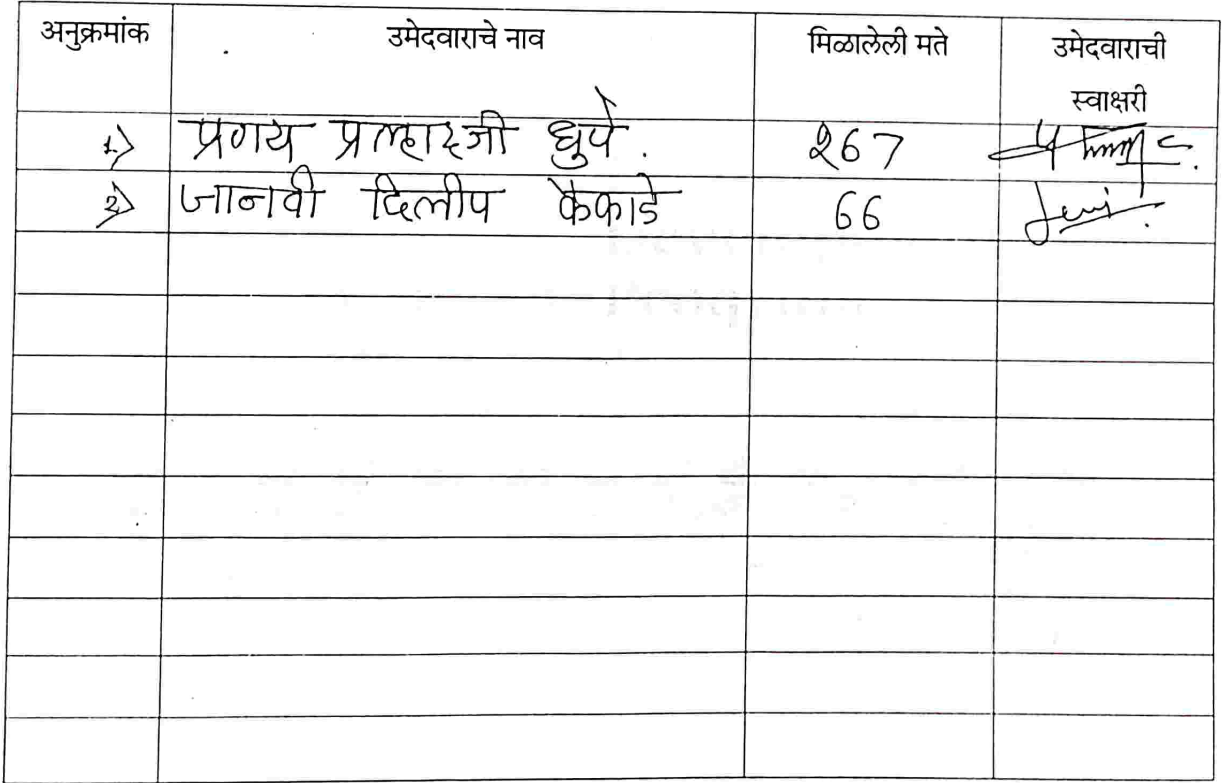 अनुक्रमांक उमेदवाराचे नाव मिळालेली मते उमेदवाराची
स्वाक्षरी
1) प्रणय प्रल्हादजी धुपे. 267
2) जानवी दिलीप कैकाडे 66